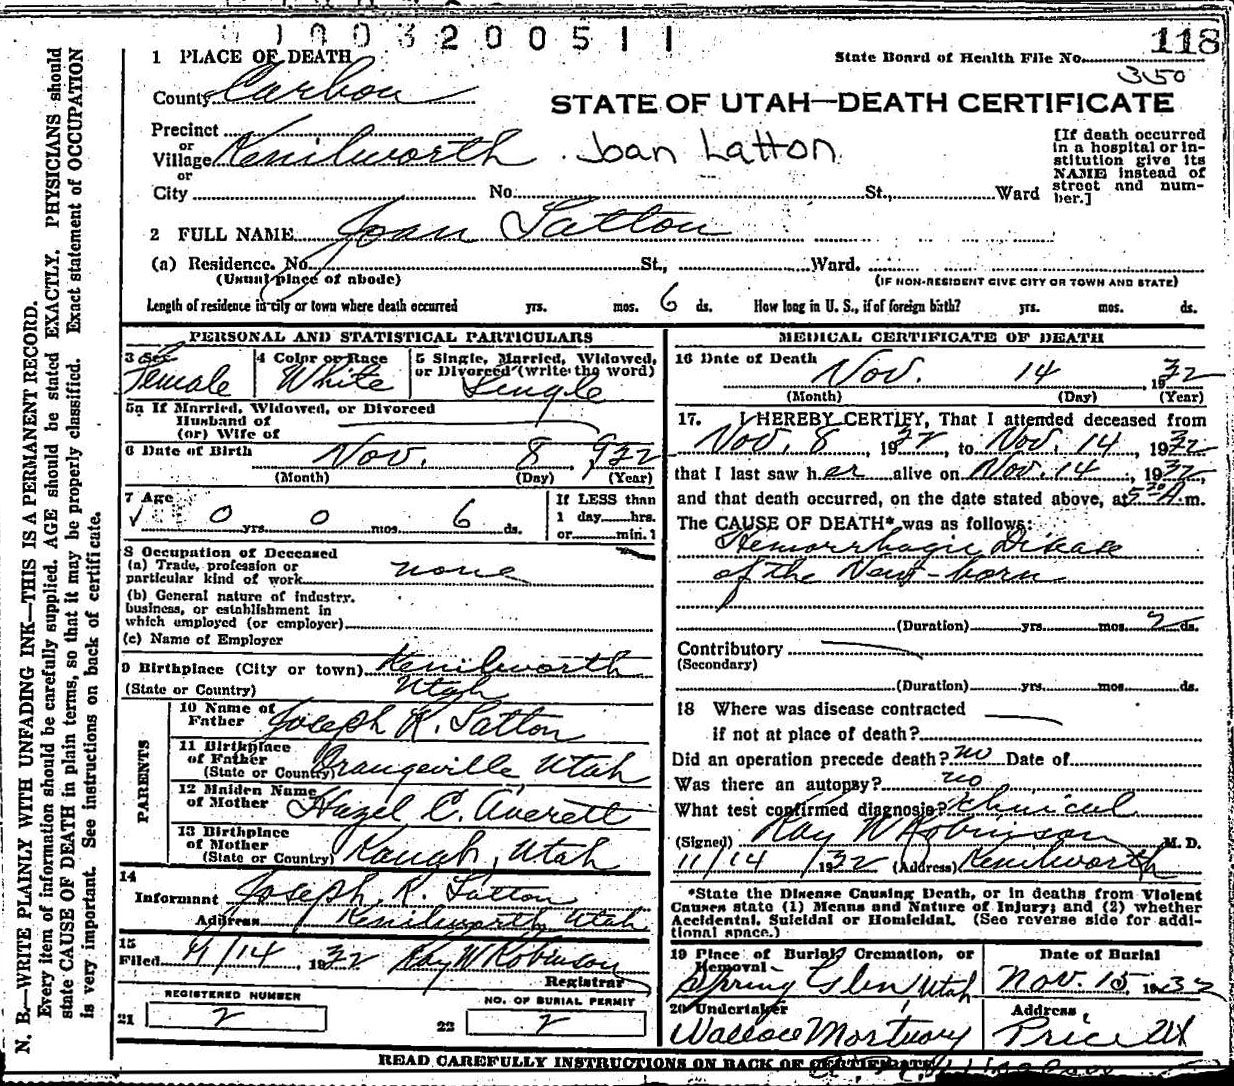 1003200511
118
1 PLACE OF DEATH
State Board of Health File No.
3150
County Carbon
STATE OF UTAH—DEATH CERTIFICATE
Precinct
or
Village Kenilworth Joan Latton
or
City No. St., Ward
[If death occurred
in a hospital or in-
stitution give its
NAME instead of
street and num-
ber.]
2 FULL NAME Joan Latton
(a) Residence. No. St., Ward.
(Usual place of abode) (IF NON-RESIDENT GIVE CITY OR TOWN AND STATE)
Length of residence in city or town where death occurred yrs. mos. 6 ds. How long in U. S., if of foreign birth? yrs. mos. ds.
PERSONAL AND STATISTICAL PARTICULARS
3 Sex
Female
4 Color or Race
White
5 Single, Married, Widowed,
or Divorced (write the word)
Single
5a If Married, Widowed, or Divorced
Husband of
(or) Wife of
6 Date of Birth Nov. 8, 932
(Month) (Day) (Year)
7 Age
0 yrs. 0 mos. 6 ds.
If LESS than
1 day hrs.
or min.?
8 Occupation of Deceased
(a) Trade, profession or
particular kind of work none
(b) General nature of industry,
business, or establishment in
which employed (or employer)
(c) Name of Employer
9 Birthplace (City or town) Kenilworth
(State or Country) Utah
PARENTS
10 Name of
Father Joseph R. Latton
11 Birthplace
of Father
(State or Country) Orangeville Utah
12 Maiden Name
of Mother Hazel C. Averett
13 Birthplace
of Mother
(State or Country) Utah
14
Informant Joseph R. Latton
Address Kenilworth Utah
15
Filed 11/14, 1932 Ray W Robinson
Registrar
REGISTERED NUMBER
21 2
NO. OF BURIAL PERMIT
22 2
MEDICAL CERTIFICATE OF DEATH
16 Date of Death
Nov. 14, 1932
(Month) (Day) (Year)
17. I HEREBY CERTIFY, That I attended deceased from
Nov. 8, 1932, to Nov. 14, 1932
that I last saw her alive on Nov. 14, 1932,
and that death occurred, on the date stated above, at 5 30 A.m.
The CAUSE OF DEATH* was as follows:
Hemorrhagic Disease
of the New-born
(Duration) yrs. mos. 2 ds.
Contributory
(Secondary)
(Duration) yrs. mos. ds.
18 Where was disease contracted
if not at place of death?
Did an operation precede death? no Date of
Was there an autopsy? no
What test confirmed diagnosis? Clinical
(Signed) Ray W Robinson M. D.
11/14/1932 (Address) Kenilworth
*State the Disease Causing Death, or in deaths from Violent
Causes state (1) Means and Nature of Injury; and (2) whether
Accidental, Suicidal or Homicidal. (See reverse side for addi-
tional space.)
19 Place of Burial, Cremation, or
Removal
Spring Glen, Utah
Date of Burial
Nov. 15, 1932
20 Undertaker
Wallace Mortuary
Address
Price Ut
READ CAREFULLY INSTRUCTIONS ON BACK OF CERTIFICATE
N. B.—WRITE PLAINLY WITH UNFADING INK—THIS IS A PERMANENT RECORD.
Every item of information should be carefully supplied. AGE should be stated EXACTLY. PHYSICIANS should
state CAUSE OF DEATH in plain terms, so that it may be properly classified. Exact statement of OCCUPATION
is very important. See instructions on back of certificate.